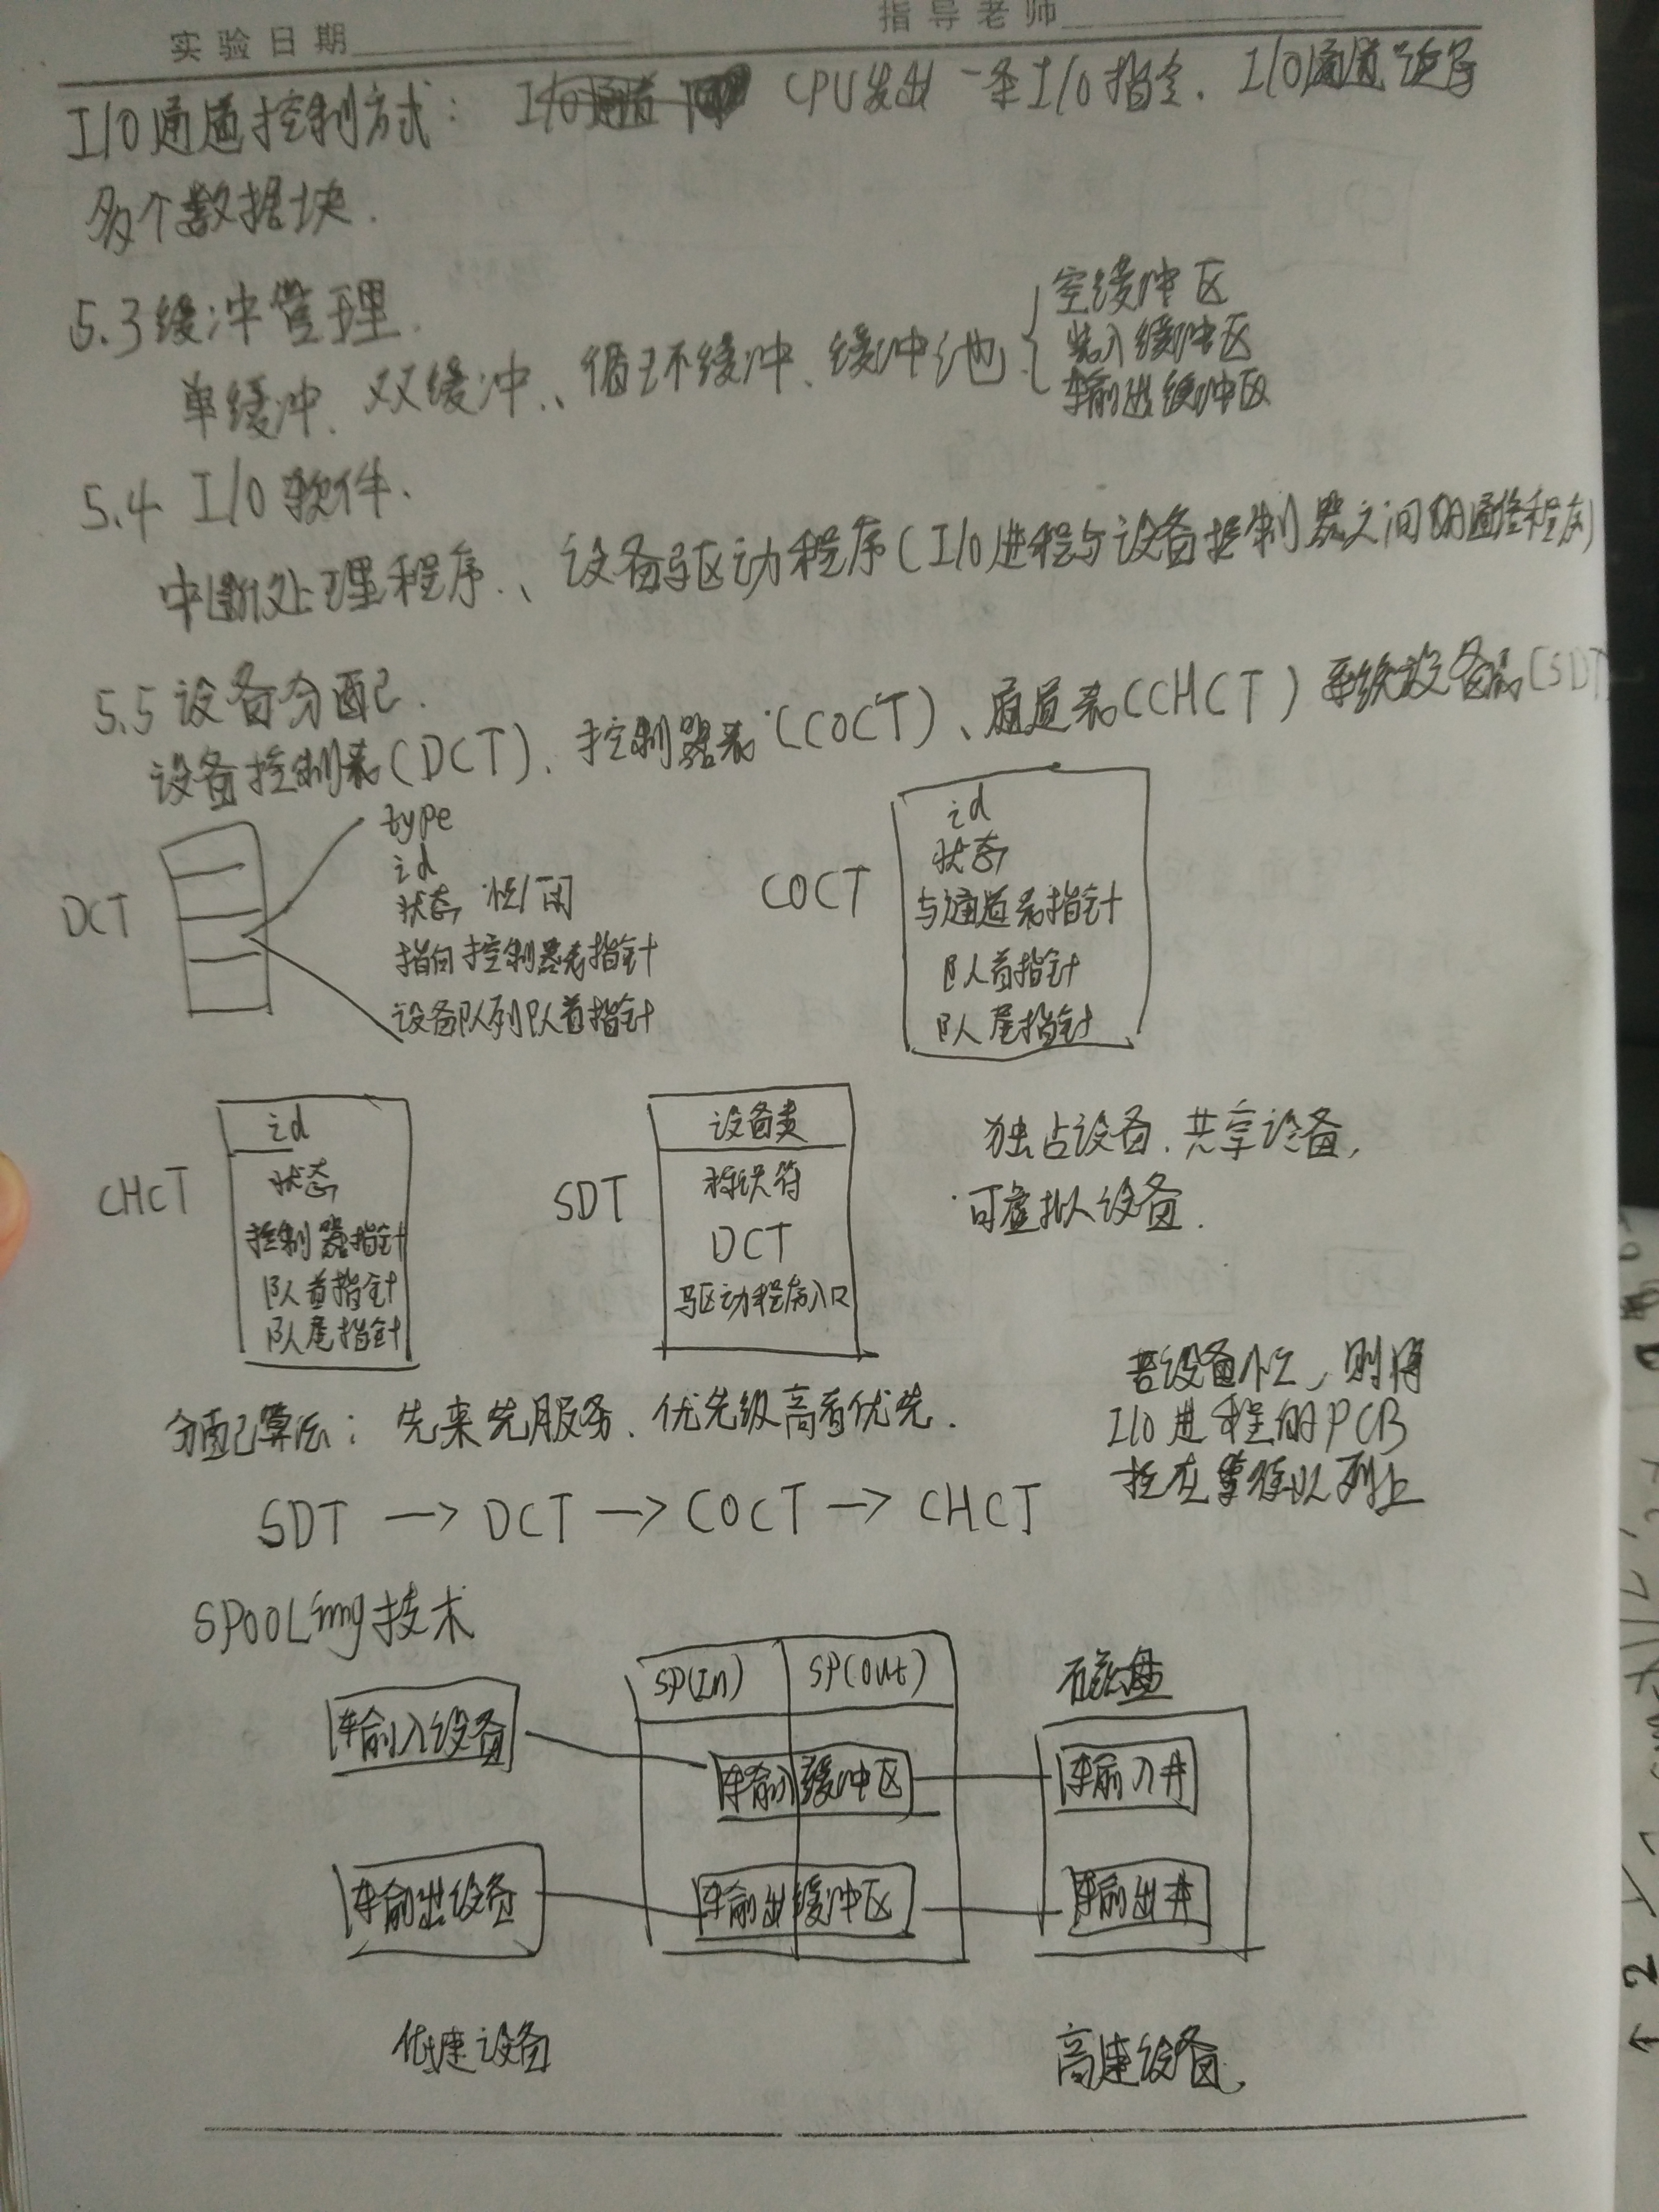 实验日期 指导老师
I/O通道控制方式: I/O通道 CPU发出一条I/O指令. I/O通道读写
多个数据块.
5.3 缓冲管理.
单缓冲、双缓冲、循环缓冲、缓冲池
空缓冲区
装入缓冲区
输出缓冲区
5.4 I/O软件.
中断处理程序、设备驱动程序(I/O进程与设备控制器之间的通信程序)
5.5 设备分配.
设备控制表(DCT)、控制器表(COCT)、通道表(CHCT) 系统设备表(SDT
DCT
type
id
状态 忙/闲
指向控制器表指针
设备队列队首指针
COCT
id
状态
与通道表指针
队首指针
队尾指针
CHCT
id
状态
控制器指针
队首指针
队尾指针
SDT
设备类
标识符
DCT
驱动程序入口
独占设备、共享设备,
可虚拟设备.
分配算法: 先来先服务、优先级高者优先.
若设备忙, 则将
I/O进程的PCB
挂在等待队列上
SDT → DCT → COCT → CHCT
SPOOLing技术
SP(In) SP(Out) 磁盘
输入设备 输入缓冲区 输入井
输出设备 输出缓冲区 输出井
低速设备 高速设备.